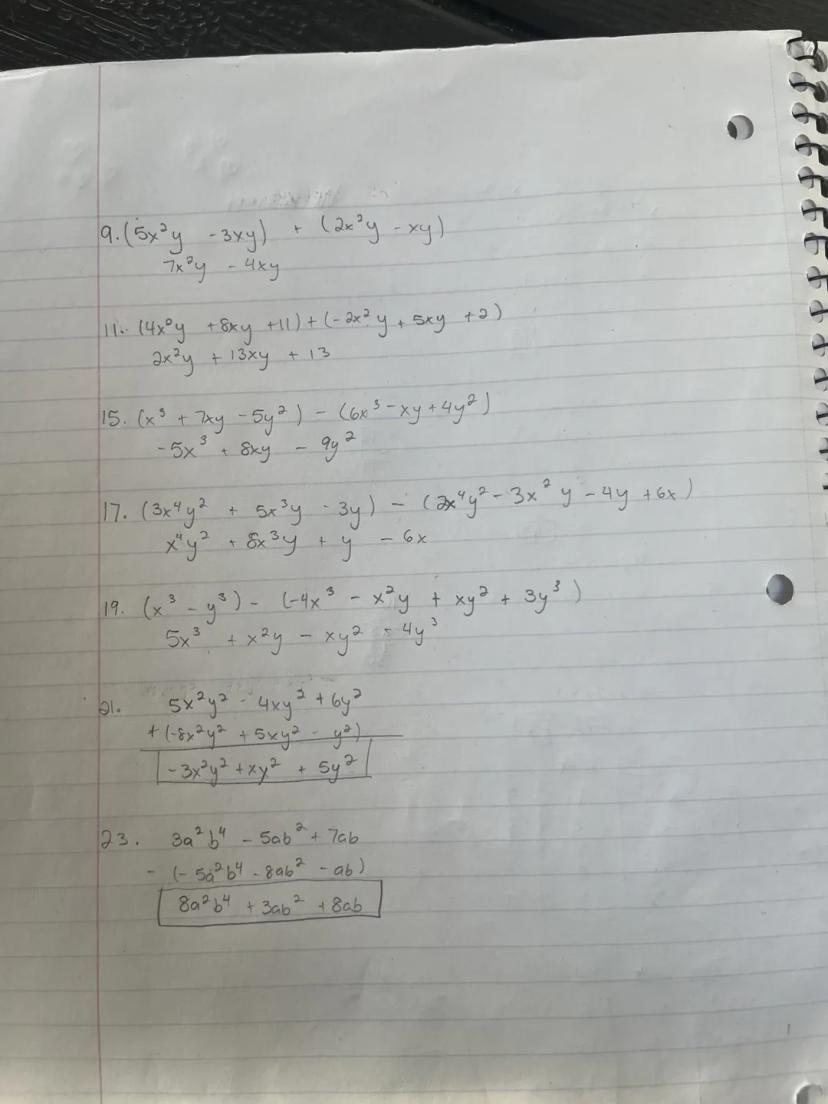 9. (5x²y - 3xy) + (2x²y - xy)
7x²y - 4xy
11. (4x²y + 8xy + 11) + (-2x²y + 5xy + 2)
2x²y + 13xy + 13
15. (x³ + 7xy - 5y²) - (6x³ - xy + 4y²)
-5x³ + 8xy - 9y²
17. (3x⁴y² + 5x³y - 3y) - (2x⁴y² - 3x²y - 4y + 6x)
x⁴y² + 8x³y + y - 6x
19. (x³ - y³) - (-4x³ - x²y + xy² + 3y³)
5x³ + x²y - xy² - 4y³
21. 5x²y² - 4xy² + 6y²
+ (-8x²y² + 5xy² - y²)
-3x²y² + xy² + 5y²
23. 3a²b⁴ - 5ab² + 7ab
- (-5a²b⁴ - 8ab² - ab)
8a²b⁴ + 3ab² + 8ab